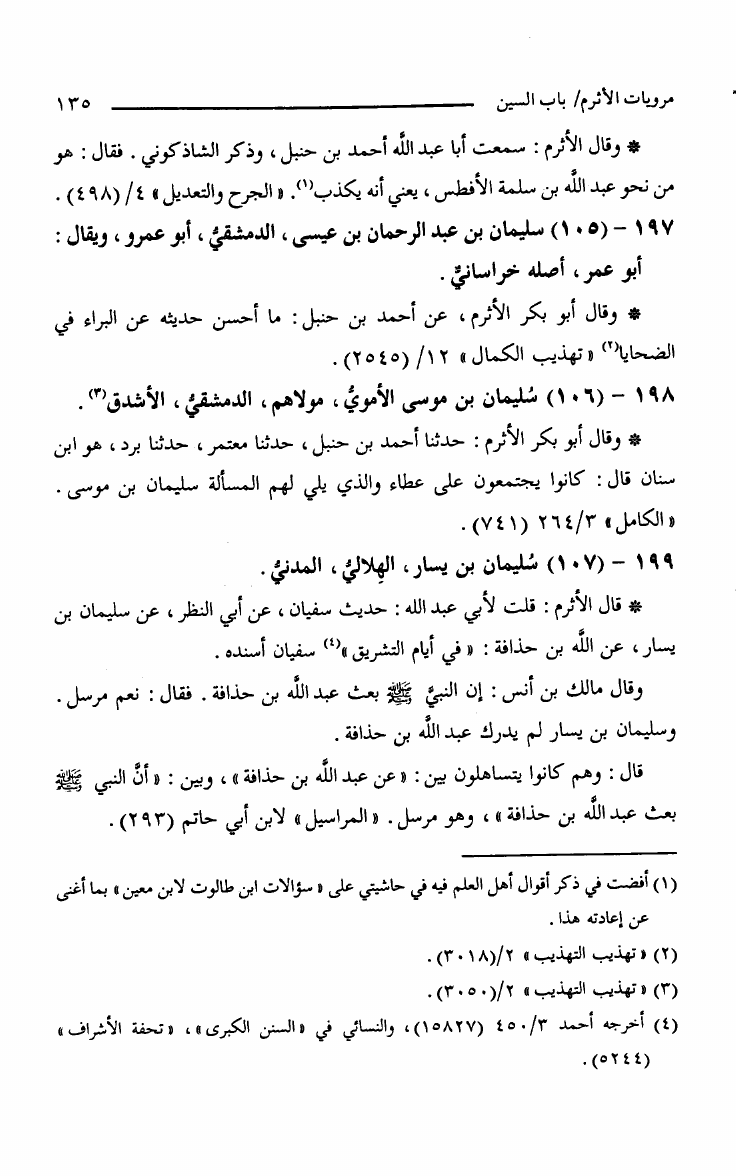 مرويات الأثرم/ باب السين ١٣٥
* وقال الأثرم : سمعت أبا عبد اللَّه أحمد بن حنبل ، وذكر الشاذكوني . فقال : هو
من نحو عبد اللَّه بن سلمة الأفطس ، يعني أنه يكذب(١). « الجرح والتعديل » ٤/ (٤٩٨) .
١٩٧ – (١٠٥) سليمان بن عبد الرحمان بن عيسى ، الدمشقيُّ ، أبو عمرو ، ويقال :
أبو عمر ، أصله خراسانيٌّ .
* وقال أبو بكر الأثرم ، عن أحمد بن حنبل : ما أحسن حديثه عن البراء في
الضحايا(٢) « تهذيب الكمال » ١٢/ (٢٥٤٥) .
١٩٨ – (١٠٦) سُليمان بن موسى الأمويُّ ، مولاهم ، الدمشقيُّ ، الأشدق(٣) .
* وقال أبو بكر الأثرم : حدثنا أحمد بن حنبل ، حدثنا معتمر ، حدثنا برد ، هو ابن
سنان قال : كانوا يجتمعون على عطاء والذي يلي لهم المسألة سليمان بن موسى .
« الكامل » ٢٦٤/٣ (٧٤١) .
١٩٩ – (١٠٧) سُليمان بن يسار ، الهِلاليُّ ، المدنيُّ .
* قال الأثرم : قلت لأبي عبد الله : حديث سفيان ، عن أبي النظر ، عن سليمان بن
يسار ، عن اللَّه بن حذافة : « في أيام التشريق »(٤) سفيان أسنده .
وقال مالك بن أنس : إن النبيَّ ﷺ بعث عبد اللَّه بن حذافة . فقال : نعم مرسل .
وسليمان بن يسار لم يدرك عبد اللَّه بن حذافة .
قال : وهم كانوا يتساهلون بين : « عن عبد اللَّه بن حذافة » ، وبين : « أنَّ النبي ﷺ
بعث عبد اللَّه بن حذافة » ، وهو مرسل . « المراسيل » لابن أبي حاتم (٢٩٣) .
(١) أفضت في ذكر أقوال أهل العلم فيه في حاشيتي على « سؤالات ابن طالوت لابن معين » بما أغنى
عن إعادته هذا .
(٢) « تهذيب التهذيب » ٢/(٣٠١٨) .
(٣) « تهذيب التهذيب » ٢/(٣٠٥٠) .
(٤) أخرجه أحمد ٤٥٠/٣ (١٥٨٢٧) ، والنسائي في « السنن الكبرى » ، « تحفة الأشراف »
(٥٢٤٤) .